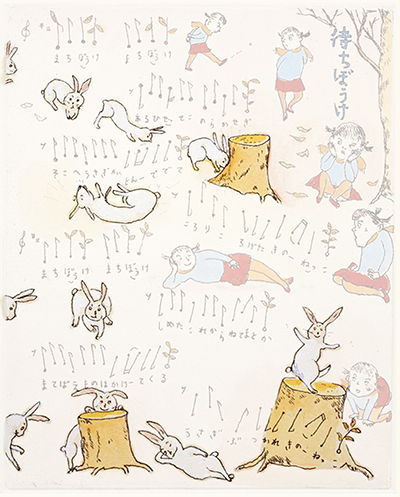 待ちぼうけ
まちぼうけ まちぼうけ
あるひせっせこ のらかせぎ
そこへうさぎが とんーでで
ころり ころげたきのーねっこ
まちぼうけ まちぼうけ
しめたこれからねてまとか
まてばえものはかけーてくる
うさぎぶつかれきのーねっこ